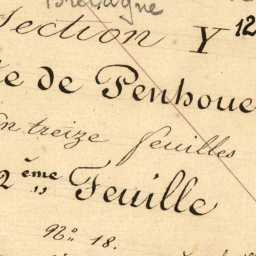 Bretagne
Section Y 12
te de Penhoue
En treize feuilles
2ème Feuille
N° 18.